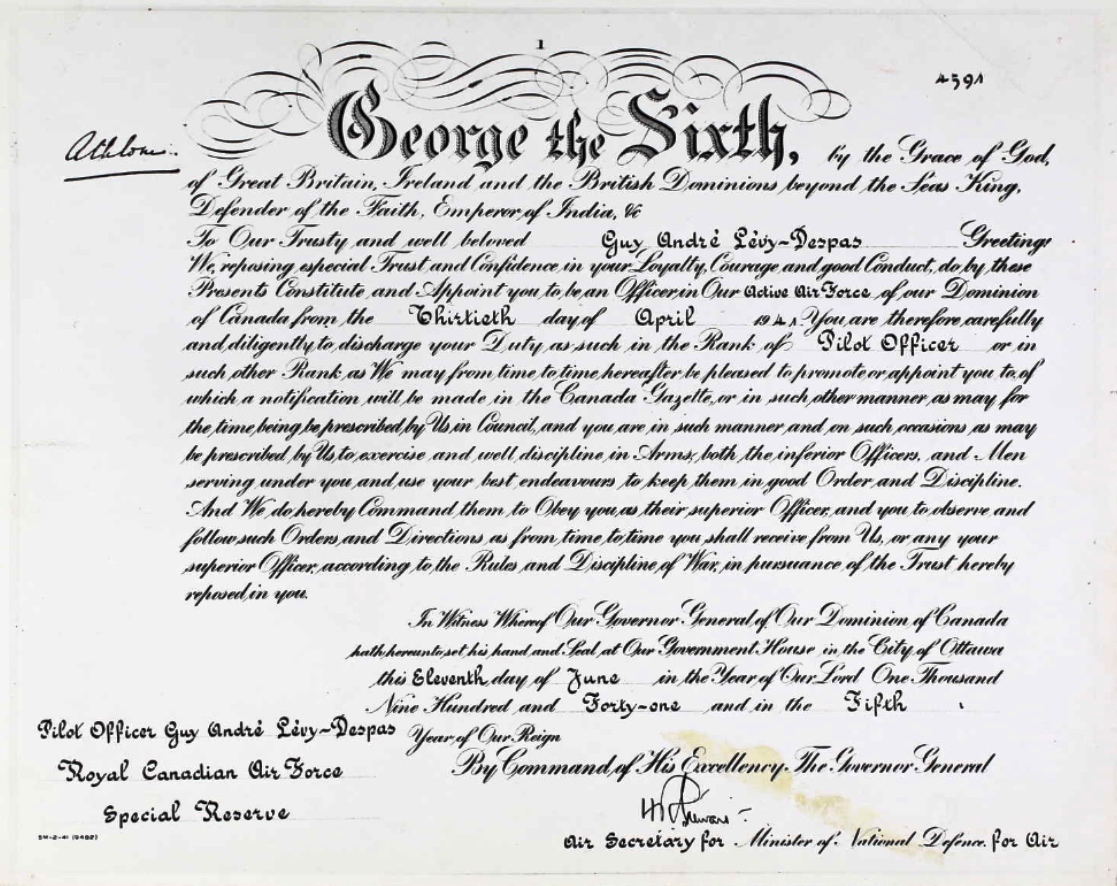 1
4591
Athlone.
George the Sixth, by the Grace of God,
of Great Britain, Ireland and the British Dominions beyond the Seas King,
Defender of the Faith, Emperor of India, &c
To Our Trusty and well beloved Guy André Lévy-Despas Greeting:
We, reposing especial Trust and Confidence in your Loyalty, Courage and good Conduct, do by these
Presents Constitute and Appoint you to be an Officer in Our Active Air Force of our Dominion
of Canada from the Thirtieth day of April 1941. You are therefore carefully
and diligently to discharge your Duty as such in the Rank of Pilot Officer or in
such other Rank as We may from time to time hereafter be pleased to promote or appoint you to, of
which a notification will be made in the Canada Gazette, or in such other manner as may for
the time being be prescribed by Us in Council, and you are in such manner and on such occasions as may
be prescribed by Us to exercise and well discipline in Arms, both the inferior Officers and Men
serving under you and use your best endeavours to keep them in good Order and Discipline.
And We do hereby Command them to Obey you as their superior Officer, and you to observe and
follow such Orders and Directions as from time to time you shall receive from Us, or any your
superior Officer, according to the Rules and Discipline of War, in pursuance of the Trust hereby
reposed in you.
In Witness Whereof Our Governor General of Our Dominion of Canada
hath hereunto set his hand and Seal at Our Government House in the City of Ottawa
this Eleventh day of June in the Year of Our Lord One Thousand
Nine Hundred and Forty-one and in the Fifth
Year of Our Reign
Pilot Officer Guy André Lévy-Despas
Royal Canadian Air Force
Special Reserve
5M-2-41 (9482)
By Command of His Excellency The Governor General
Air Secretary for Minister of National Defence for Air